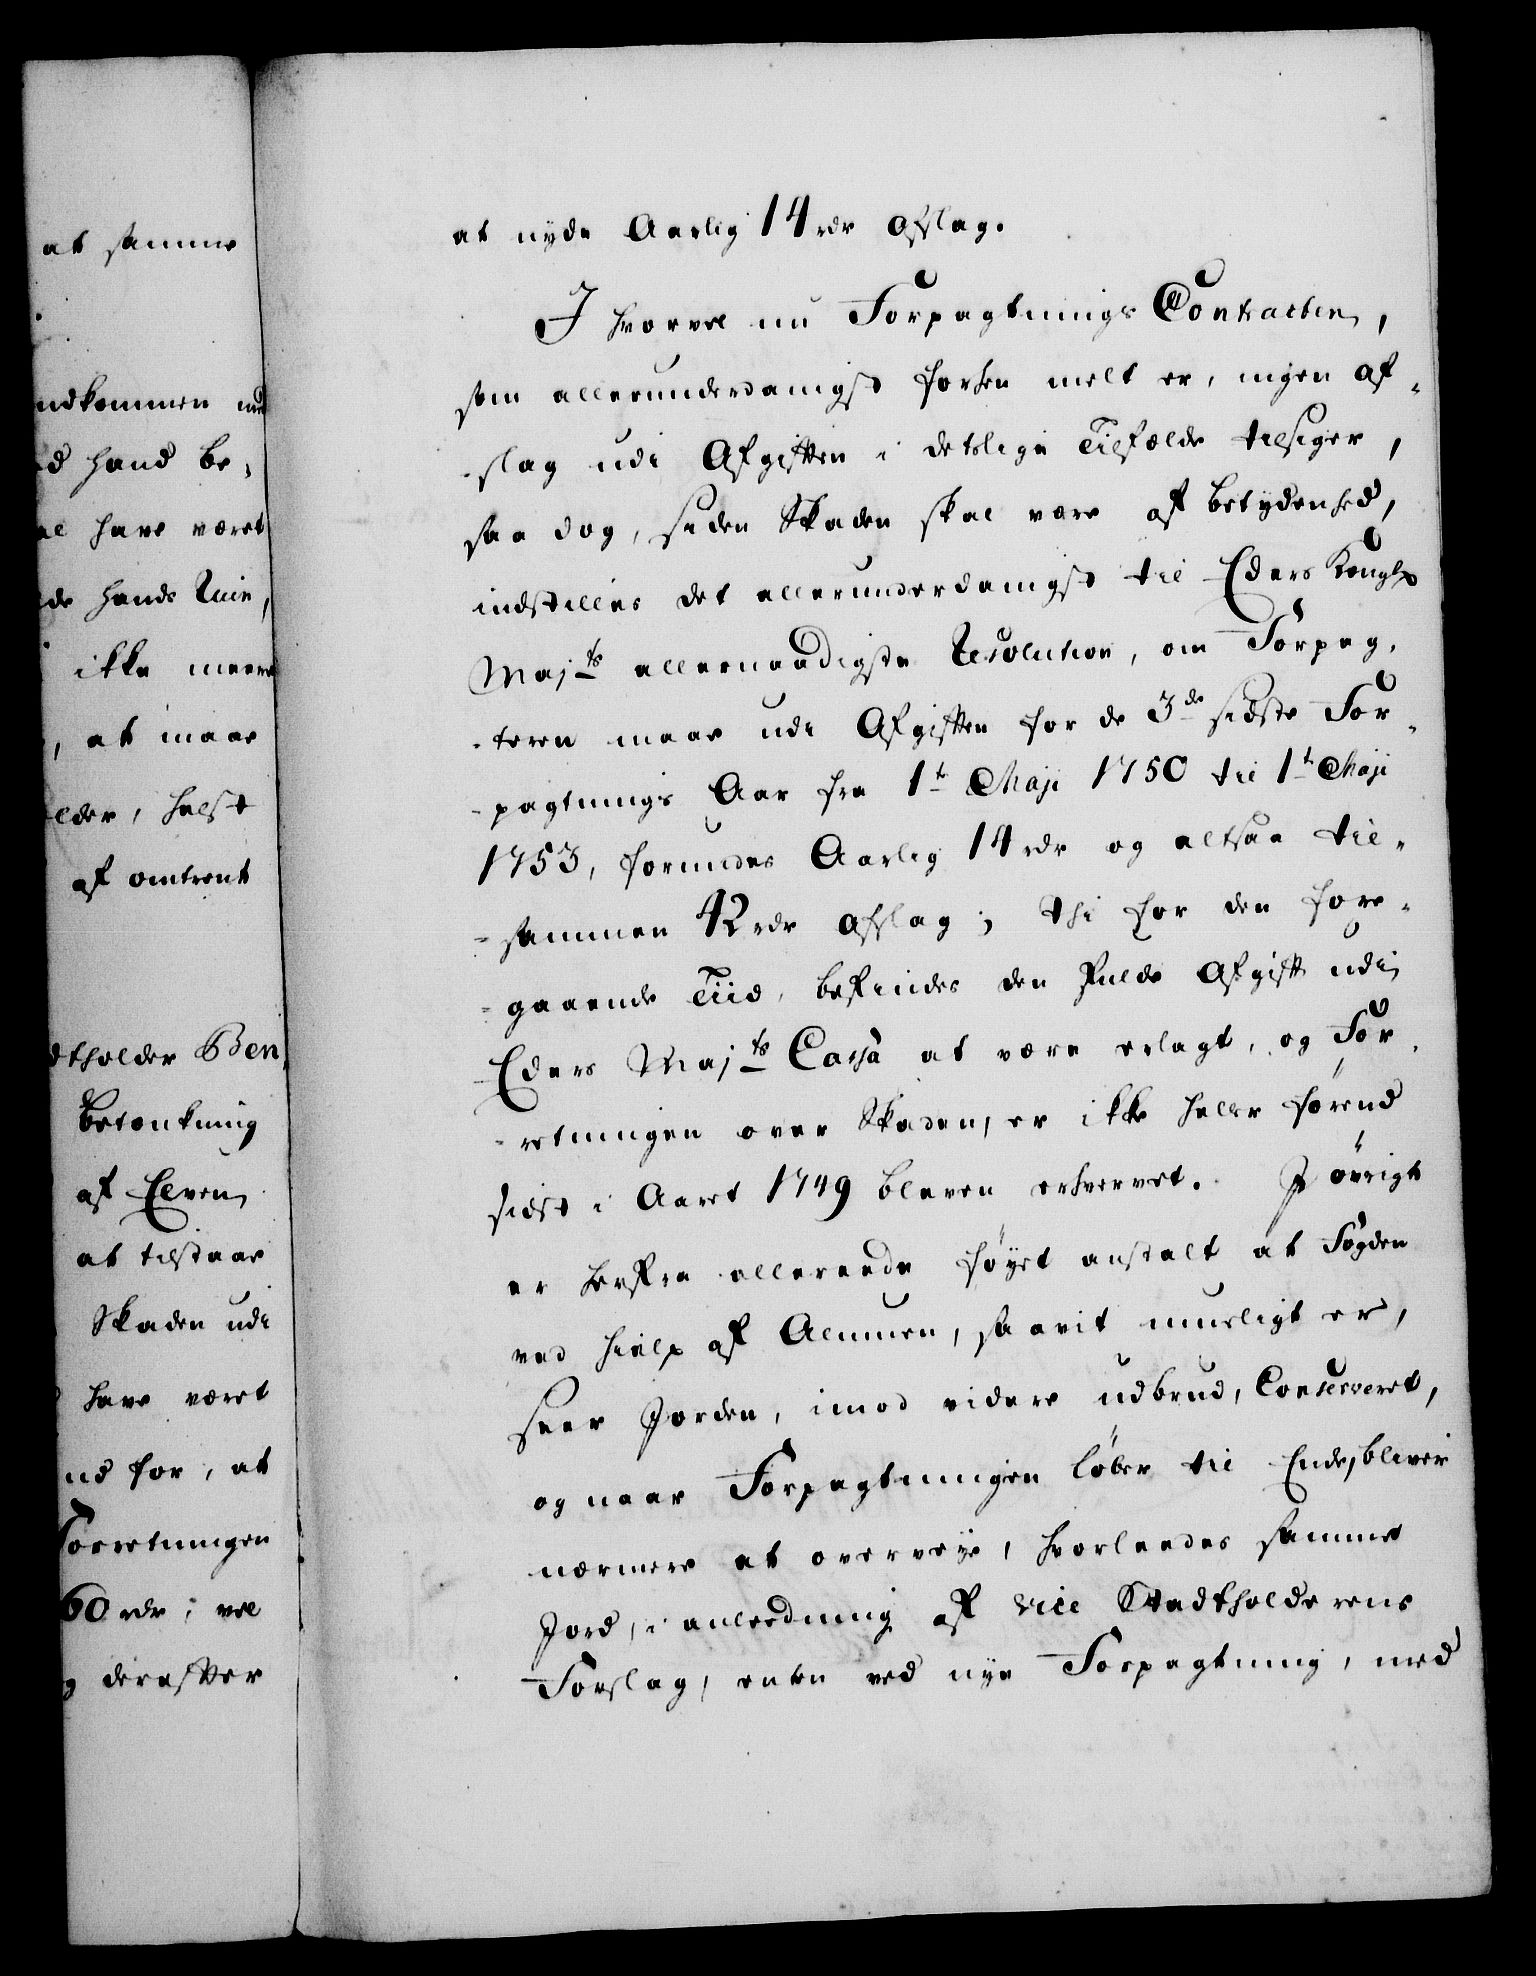 at samme
ndkommen
d hand be-
al have været
de hands Ruin,
ikke meere
, at maae
lder, helst
af omtrent
dtholder Ben
betænkning
af Elven
at tilstaae
Skaden udi
have været
nd for, at
Forretningen
60 rdr, vel
derefter
at nyde Aarlig 14 rdr afslag.
I hvorvel nu Forpagtnings Contracten,
som allerunderdanigst forhen melt er, ingen af-
-slag udi Afgiften i detslige Tilfælde tilsiger,
saa dog, siden Skaden skal være af betydenhed,
indstilles det allerunderdanigst til Eders Kongl.
Maj.ts allernaadigste Resolution, om Forpag-
-teren maae udi Afgiften for de 3de sidste For-
-pagtnings Aar fra 1t Maji 1750 til 1t Maji
1753, forundes Aarlig 14 rdr og altsaa til-
-sammen 42 rdr afslag; thi for den fore-
-gaaende Tiid, befindes den fulde Afgift udi
Eders Maj.ts Cassa at være erlagt, og For-
-retningen over Skaden, er ikke heller førend
sidst i Aaret 1749 bleven erhvervet. I øvrigt
er herfra allereede føyet anstalt at Fogden
ved hielp af Almuen, saavit mueligt er,
seer Jorden, imod videre udbrud, Conserveret,
og naar Forpagtningen løber til Ende, bliver
nærmere at overveye, hvorleedes samme
Jord, i anleedning af Vice Stadtholderens
Forslag, enten ved nye Forpagtning, med